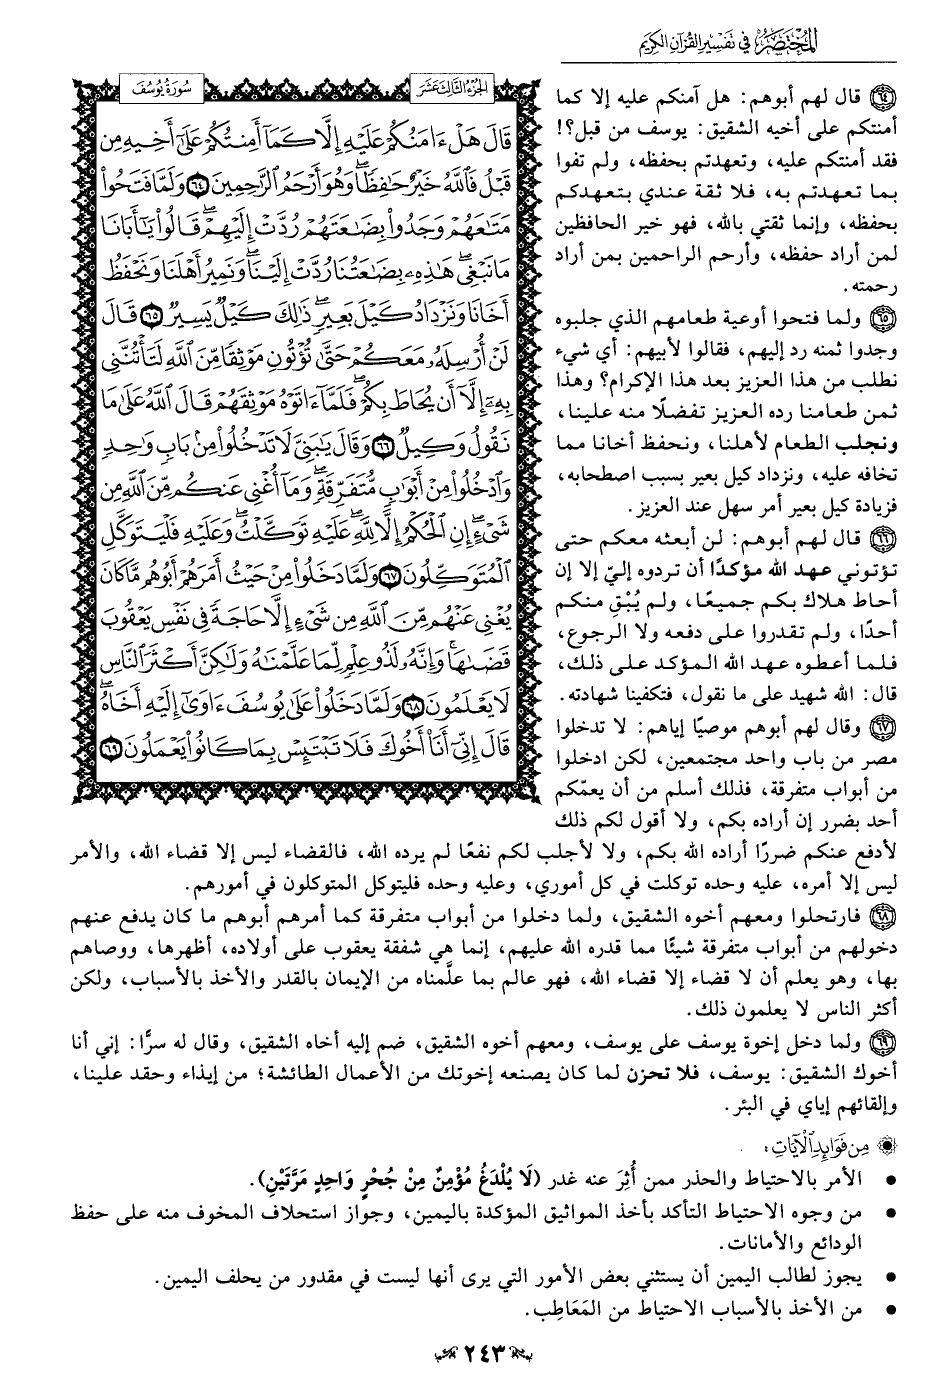 المختصر في تفسير القرآن الكريم
الجزء الثالث عشر
سورة يوسف
قَالَ هَلْ ءَامَنُكُمْ عَلَيْهِ إِلَّا كَمَآ أَمِنتُكُمْ عَلَىٰٓ أَخِيهِ مِن
قَبْلُ فَٱللَّهُ خَيْرٌ حَٰفِظًا ۖ وَهُوَ أَرْحَمُ ٱلرَّٰحِمِينَ ٦٤ وَلَمَّا فَتَحُوا۟
مَتَٰعَهُمْ وَجَدُوا۟ بِضَٰعَتَهُمْ رُدَّتْ إِلَيْهِمْ ۖ قَالُوا۟ يَٰٓأَبَانَا
مَا نَبْغِى ۖ هَٰذِهِۦ بِضَٰعَتُنَا رُدَّتْ إِلَيْنَا ۖ وَنَمِيرُ أَهْلَنَا وَنَحْفَظُ
أَخَانَا وَنَزْدَادُ كَيْلَ بَعِيرٍ ۖ ذَٰلِكَ كَيْلٌ يَسِيرٌ ٦٥ قَالَ
لَنْ أُرْسِلَهُۥ مَعَكُمْ حَتَّىٰ تُؤْتُونِ مَوْثِقًا مِّنَ ٱللَّهِ لَتَأْتُنَّنِى
بِهِۦٓ إِلَّآ أَن يُحَاطَ بِكُمْ ۖ فَلَمَّآ ءَاتَوْهُ مَوْثِقَهُمْ قَالَ ٱللَّهُ عَلَىٰ مَا
نَقُولُ وَكِيلٌ ٦٦ وَقَالَ يَٰبَنِىَّ لَا تَدْخُلُوا۟ مِنۢ بَابٍ وَٰحِدٍ
وَٱدْخُلُوا۟ مِنْ أَبْوَٰبٍ مُّتَفَرِّقَةٍ ۖ وَمَآ أُغْنِى عَنكُم مِّنَ ٱللَّهِ مِن
شَىْءٍ ۖ إِنِ ٱلْحُكْمُ إِلَّا لِلَّهِ ۖ عَلَيْهِ تَوَكَّلْتُ ۖ وَعَلَيْهِ فَلْيَتَوَكَّلِ
ٱلْمُتَوَكِّلُونَ ٦٧ وَلَمَّا دَخَلُوا۟ مِنْ حَيْثُ أَمَرَهُمْ أَبُوهُم مَّا كَانَ
يُغْنِى عَنْهُم مِّنَ ٱللَّهِ مِن شَىْءٍ إِلَّا حَاجَةً فِى نَفْسِ يَعْقُوبَ
قَضَىٰهَا ۚ وَإِنَّهُۥ لَذُو عِلْمٍ لِّمَا عَلَّمْنَٰهُ وَلَٰكِنَّ أَكْثَرَ ٱلنَّاسِ
لَا يَعْلَمُونَ ٦٨ وَلَمَّا دَخَلُوا۟ عَلَىٰ يُوسُفَ ءَاوَىٰٓ إِلَيْهِ أَخَاهُ ۖ
قَالَ إِنِّىٓ أَنَا۠ أَخُوكَ فَلَا تَبْتَئِسْ بِمَا كَانُوا۟ يَعْمَلُونَ ٦٩
٦٤ قال لهم أبوهم: هل آمنكم عليه إلا كما
أمنتكم على أخيه الشقيق: يوسف من قبل؟!
فقد أمنتكم عليه، وتعهدتم بحفظه، ولم تفوا
بما تعهدتم به، فلا ثقة عندي بتعهدكم
بحفظه، وإنما ثقتي بالله، فهو خير الحافظين
لمن أراد حفظه، وأرحم الراحمين بمن أراد
رحمته.
٦٥ ولما فتحوا أوعية طعامهم الذي جلبوه
وجدوا ثمنه رد إليهم، فقالوا لأبيهم: أي شيء
نطلب من هذا العزيز بعد هذا الإكرام؟ وهذا
ثمن طعامنا رده العزيز تفضلًا منه علينا،
ونجلب الطعام لأهلنا، ونحفظ أخانا مما
تخافه عليه، ونزداد كيل بعير بسبب اصطحابه،
فزيادة كيل بعير أمر سهل عند العزيز.
٦٦ قال لهم أبوهم: لن أبعثه معكم حتى
تؤتوني عهد الله مؤكدًا أن تردوه إليّ إلا إن
أحاط هلاك بكم جميعًا، ولم يُبْقِ منكم
أحدًا، ولم تقدروا على دفعه ولا الرجوع،
فلما أعطوه عهد الله المؤكد على ذلك،
قال: الله شهيد على ما نقول، فتكفينا شهادته.
٦٧ وقال لهم أبوهم موصيًا إياهم: لا تدخلوا
مصر من باب واحد مجتمعين، لكن ادخلوا
من أبواب متفرقة، فذلك أسلم من أن يعمّكم
أحد بضرر إن أراده بكم، ولا أقول لكم ذلك
لأدفع عنكم ضررًا أراده الله بكم، ولا لأجلب لكم نفعًا لم يرده الله، فالقضاء ليس إلا قضاء الله، والأمر
ليس إلا أمره، عليه وحده توكلت في كل أموري، وعليه وحده فليتوكل المتوكلون في أمورهم.
٦٨ فارتحلوا ومعهم أخوه الشقيق، ولما دخلوا من أبواب متفرقة كما أمرهم أبوهم ما كان يدفع عنهم
دخولهم من أبواب متفرقة شيئًا مما قدره الله عليهم، إنما هي شفقة يعقوب على أولاده، أظهرها، ووصاهم
بها، وهو يعلم أن لا قضاء إلا قضاء الله، فهو عالم بما علَّمناه من الإيمان بالقدر والأخذ بالأسباب، ولكن
أكثر الناس لا يعلمون ذلك.
٦٩ ولما دخل إخوة يوسف على يوسف، ومعهم أخوه الشقيق، ضم إليه أخاه الشقيق، وقال له سرًّا: إني أنا
أخوك الشقيق: يوسف، فلا تحزن لما كان يصنعه إخوتك من الأعمال الطائشة؛ من إيذاء وحقد علينا،
وإلقائهم إياي في البئر.
من فوائد الآيات:
• الأمر بالاحتياط والحذر ممن أُثِرَ عنه غدر (لَا يُلْدَغُ مُؤْمِنٌ مِنْ جُحْرٍ وَاحِدٍ مَرَّتَيْنِ).
• من وجوه الاحتياط التأكد بأخذ المواثيق المؤكدة باليمين، وجواز استحلاف المخوف منه على حفظ
الودائع والأمانات.
• يجوز لطالب اليمين أن يستثني بعض الأمور التي يرى أنها ليست في مقدور من يحلف اليمين.
• من الأخذ بالأسباب الاحتياط من المَعَاطِب.
٢٤٣